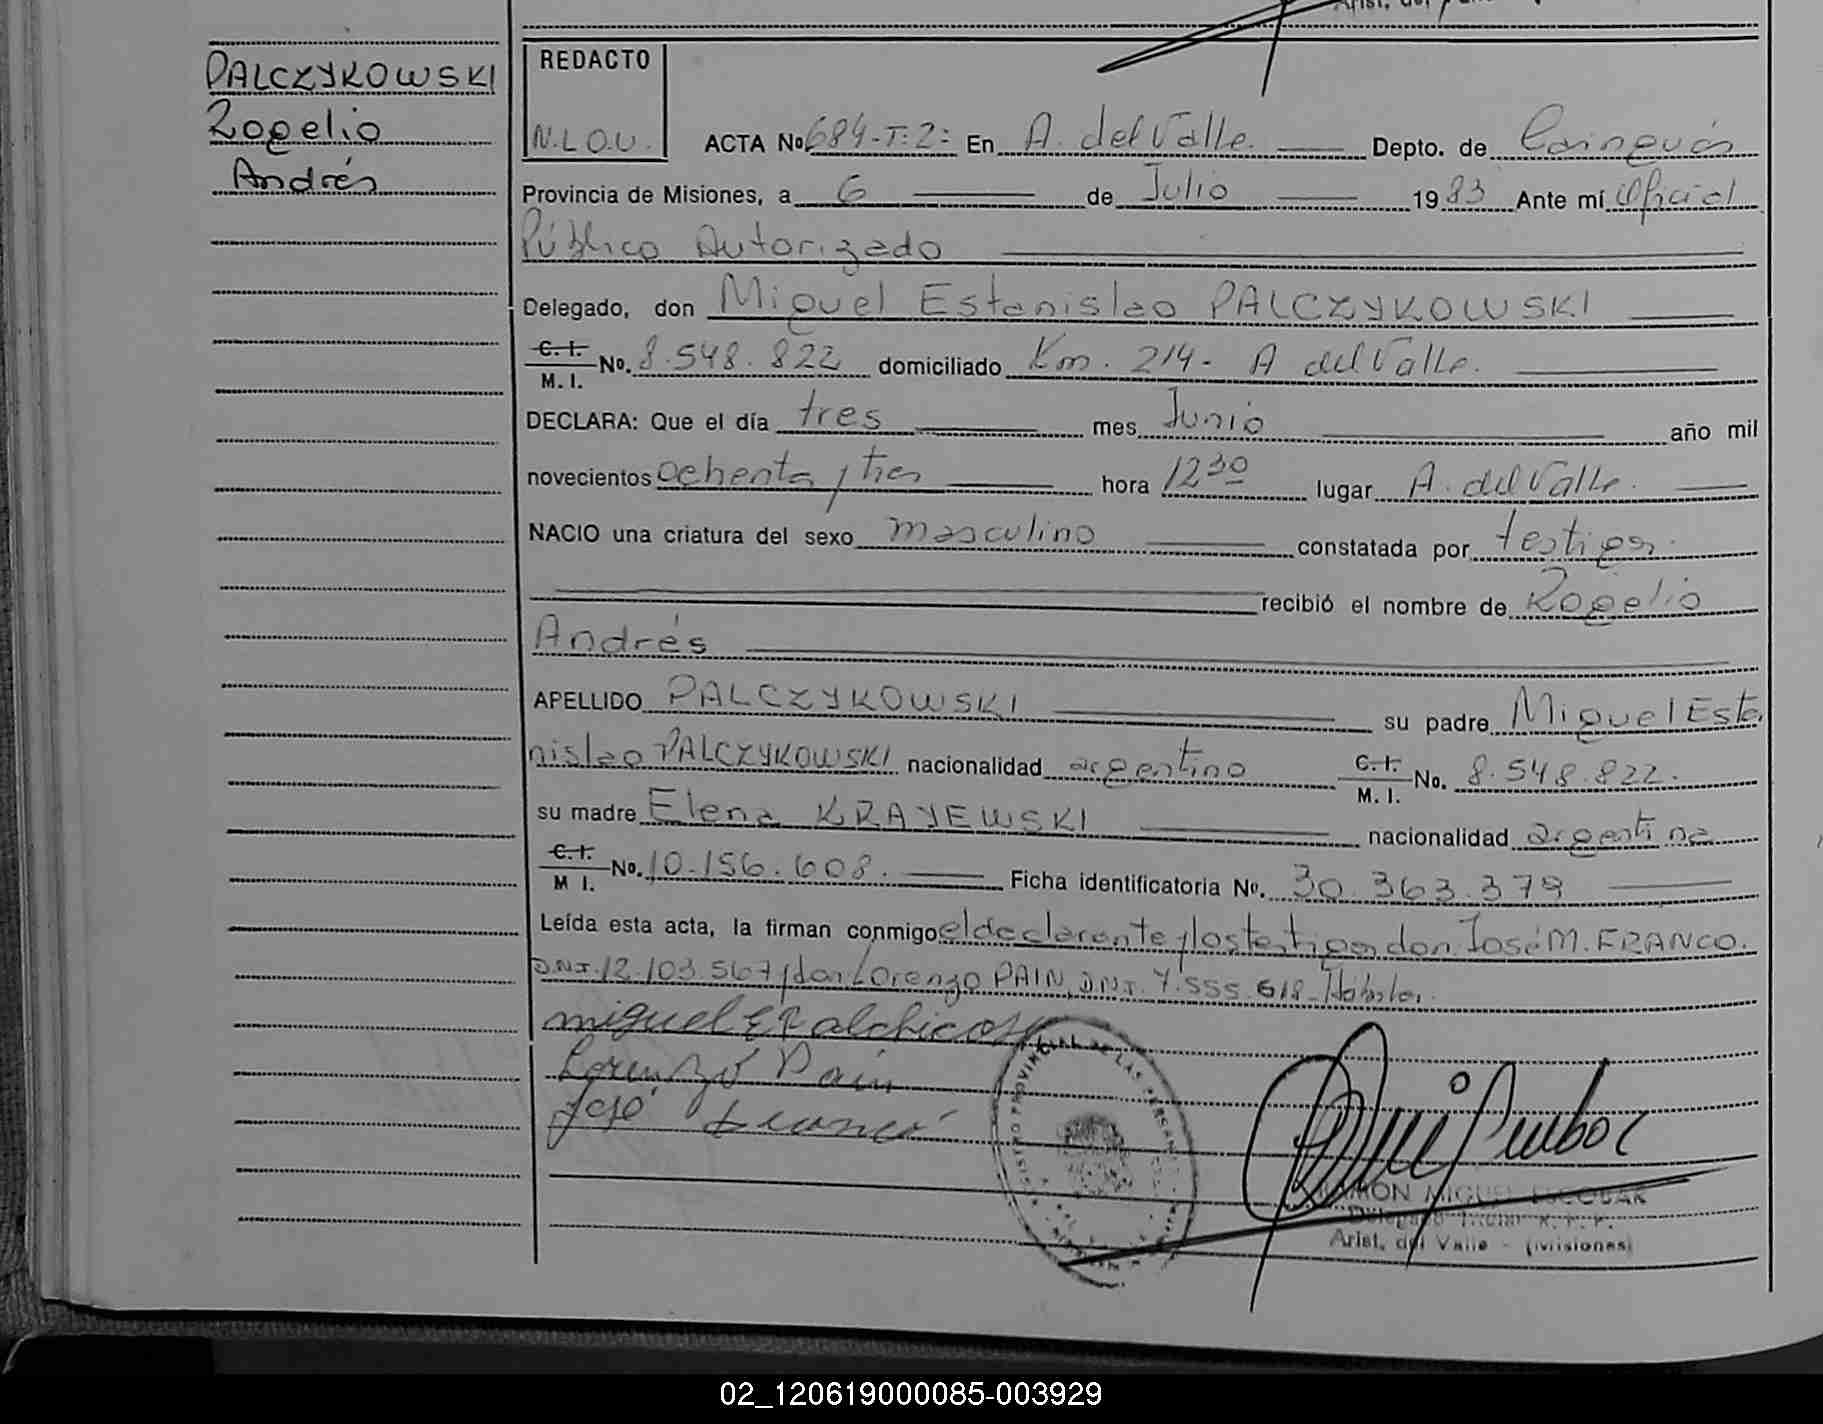 PALCZYKOWSKI
Rogelio
Andrés
REDACTO
N.L.O.U.
ACTA No. 684-T:2: En A. del Valle. Depto. de Cainguás
Provincia de Misiones, a 6 de Julio 1983 Ante mí Oficial
Público Autorizado
Delegado, don Miguel Estanislao PALCZYKOWSKI
C. I. / M. I. No. 8.548.822 domiciliado Km. 214- A del Valle.
DECLARA: Que el día tres mes Junio año mil
novecientos ochenta y tres hora 12 30 lugar A. del Valle.
NACIO una criatura del sexo masculino constatada por testigos.
recibió el nombre de Rogelio
Andrés
APELLIDO PALCZYKOWSKI su padre Miguel Esta
nislao PALCZYKOWSKI nacionalidad argentino C. I. / M. I. No. 8.548.822.
su madre Elena KRAYEWSKI nacionalidad argentina
C. I. / M I. No. 10.156.608. Ficha identificatoria No. 30.363.379
Leída esta acta, la firman conmigo el declarante y los testigos don José M. FRANCO.
D.N.I. 12.103.567 y don Lorenzo PAIN, D.N.I. 7.555.618-
miguel E Palchicosk
Lorenzo Pain
José Franco
REGISTRO PROVINCIAL DE LAS PERSONAS
RAMON MIGUEL ESCOBAR
Delegado Titular R. P. P.
Arist. del Valle - (Misiones)
02_120619000085-003929